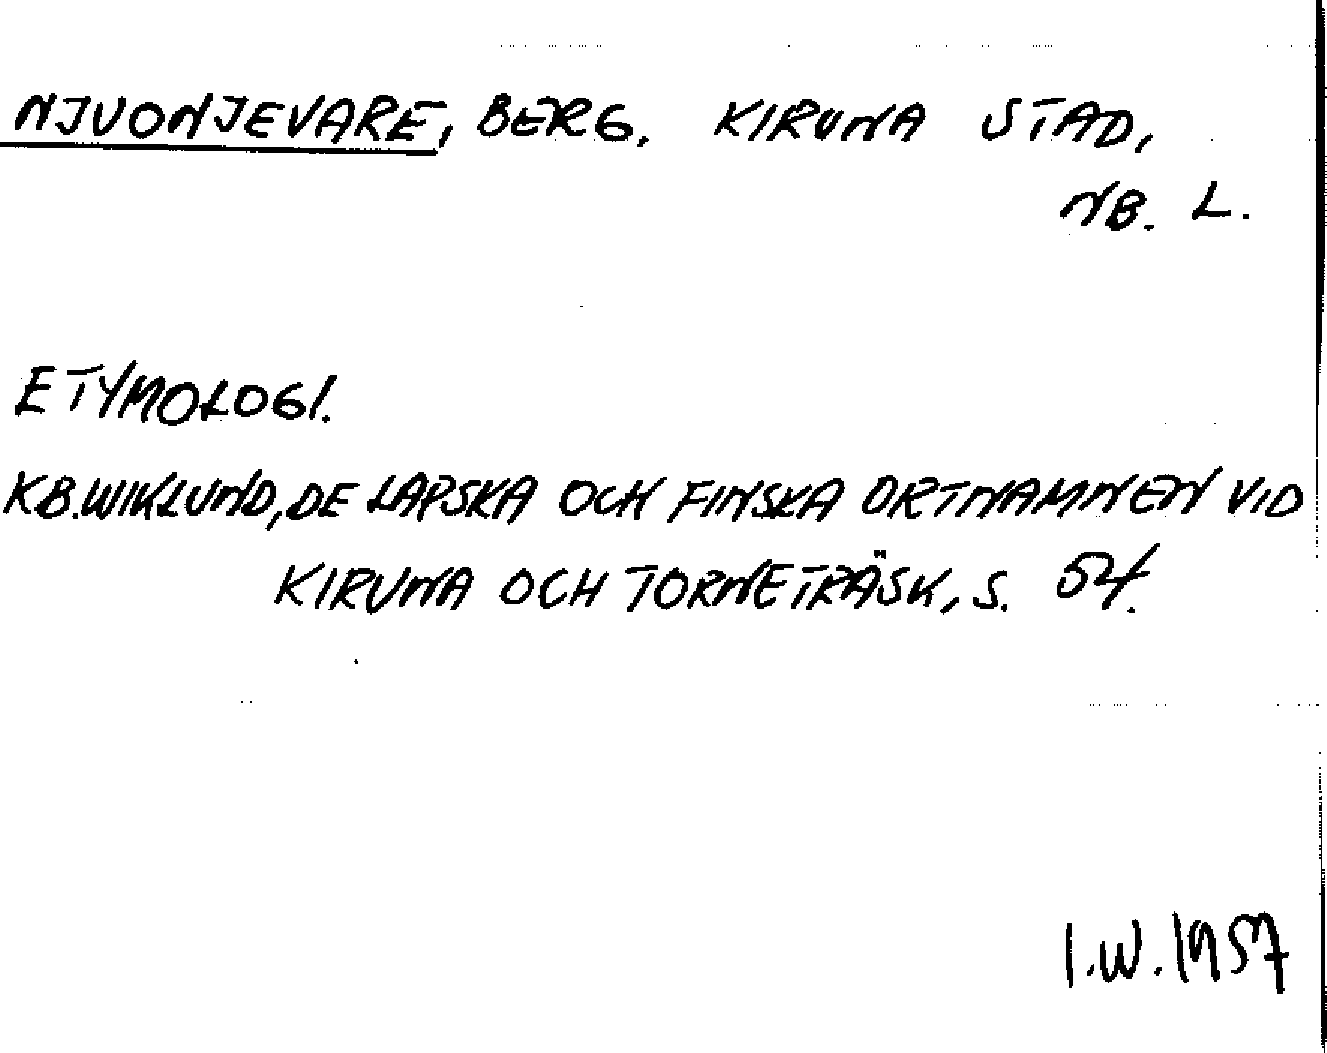 NJUONJEVARE, BERG. KIRUNA STAD,
NB. L.
ETYMOLOGI.
KB.WIKLUND, DE LAPSKA OCH FINSKA ORTNAMNEN VID
KIRUNA OCH TORNETRÄSK, S. 54.
I.W. 1957